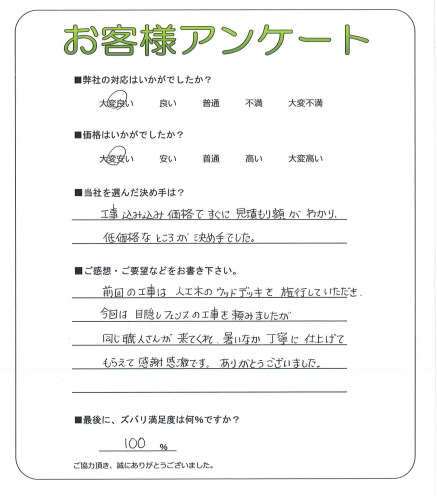 お客様アンケート
■弊社の対応はいかがでしたか？
大変良い 良い 普通 不満 大変不満
■価格はいかがでしたか？
大変安い 安い 普通 高い 大変高い
■当社を選んだ決め手は？
工事込み込み価格ですぐに見積もり額がわかり、
低価格なところが決め手でした。
■ご感想・ご要望などをお書き下さい。
前回の工事は人工木のウッドデッキを施行していただき、
今回は目隠しフェンスの工事を頼みましたが
同じ職人さんが来てくれ、暑いなか丁寧に仕上げて
もらえて感謝感激です。ありがとうございました。
■最後に、ズバリ満足度は何％ですか？
100 ％
ご協力頂き、誠にありがとうございました。